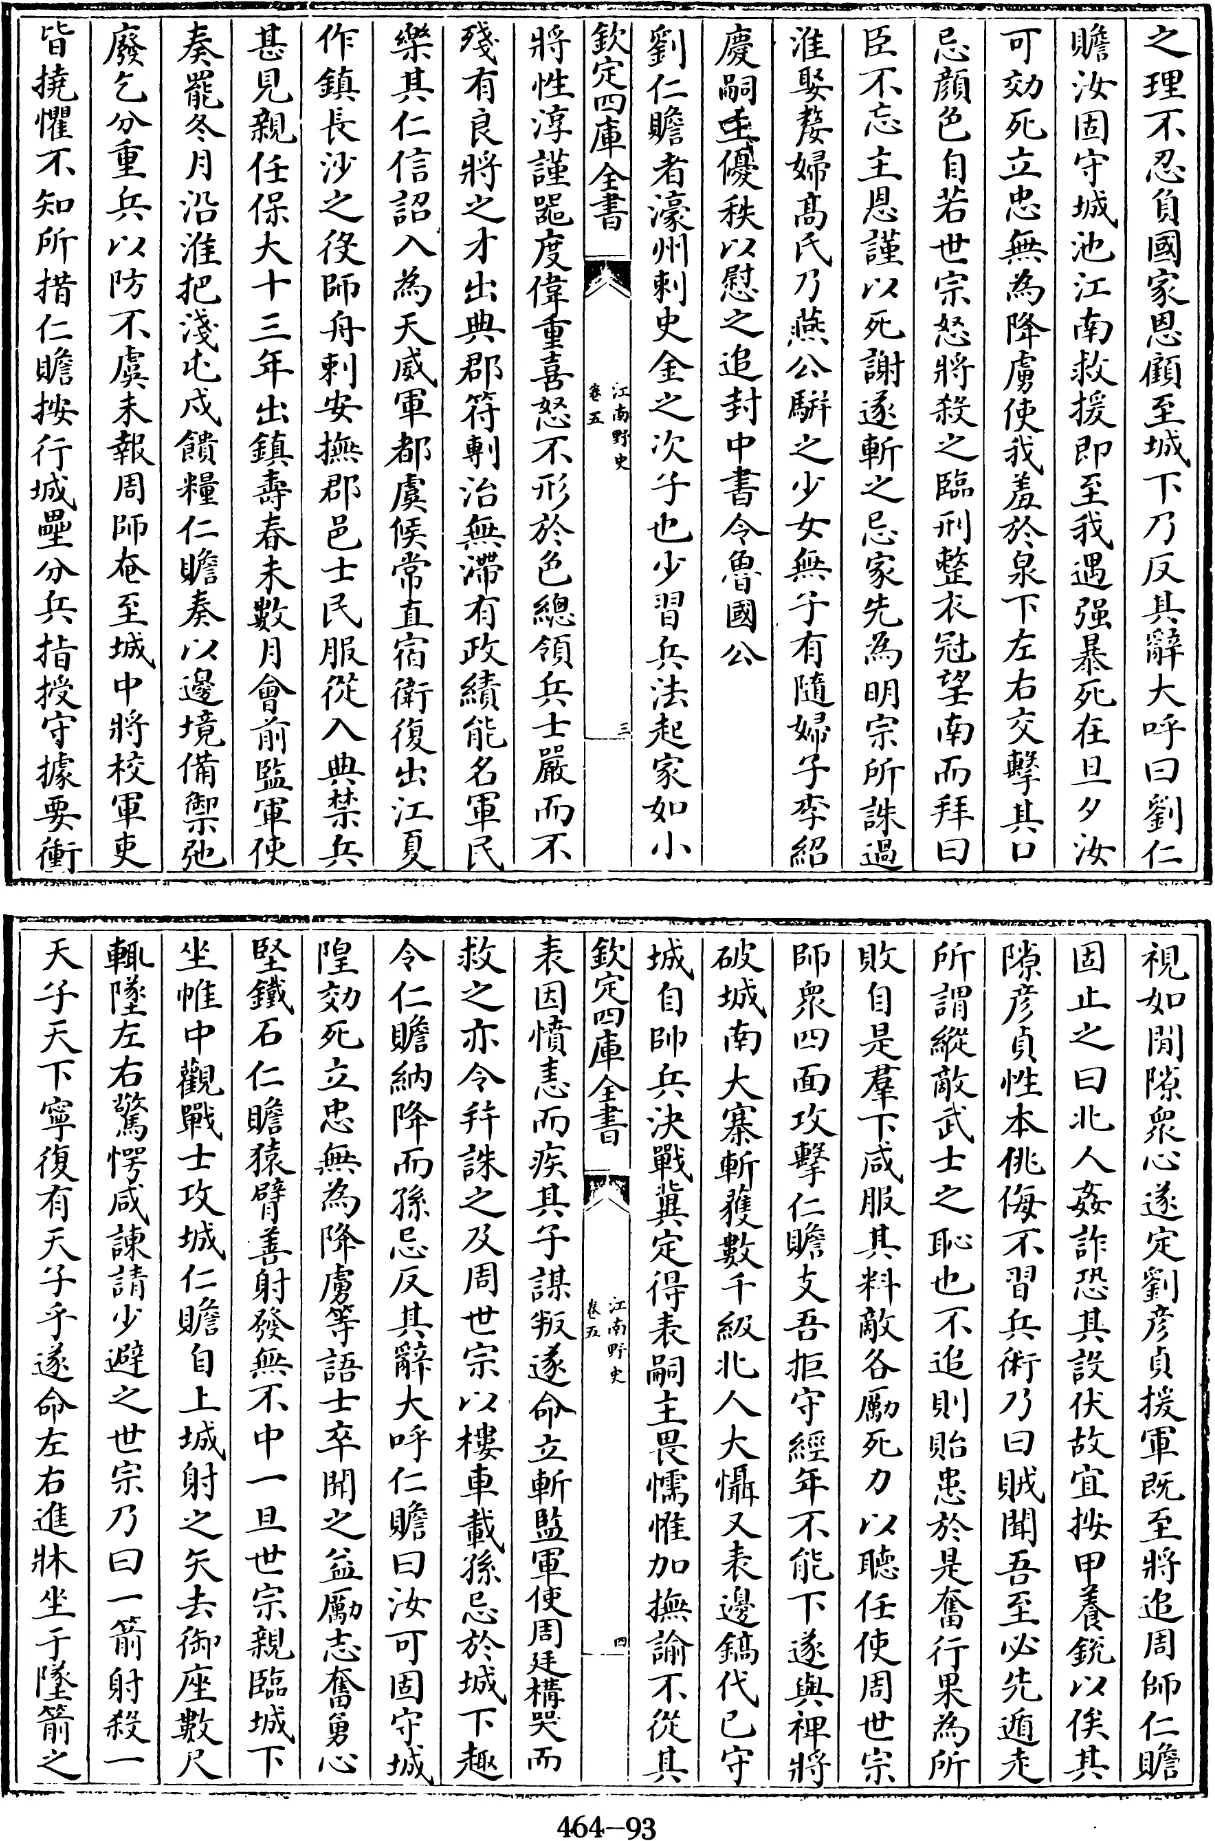 之理不忍負國家恩顧至城下乃反其辭大呼曰劉仁
贍汝固守城池江南救援即至我遇强暴死在旦夕汝
可効死立忠無為降虜使我羞於泉下左右交擊其口
忌顔色自若世宗怒將殺之臨刑整衣冠望南而拜曰
臣不忘主恩謹以死謝遂斬之忌家先為明宗所誅過
淮娶嫠婦髙氏乃燕公駢之少女無子有隨婦子李紹
慶嗣主優秩以慰之追封中書令魯國公
劉仁贍者濠州刺史金之次子也少習兵法起家如小
欽定四庫全書
江南野史
卷五
三
將性淳謹噐度偉重喜怒不形於色總領兵士嚴而不
殘有良將之才出典郡符剸治無滯有政績能名軍民
樂其仁信詔入為天威軍都虞候常直宿衛復出江夏
作鎮長沙之役師舟刺安撫郡邑士民服從入典禁兵
甚見親任保大十三年出鎮壽春未數月會前監軍使
奏罷冬月沿淮把淺屯戍饋糧仁贍奏以邊境備禦弛
廢乞分重兵以防不虞未報周師奄至城中將校軍吏
皆撓懼不知所措仁贍按行城壘分兵指授守據要衝
視如閒隙衆心遂定劉彦貞援軍既至將追周師仁贍
固止之曰北人姦詐恐其設伏故宜按甲養銳以俟其
隙彦貞性本佻侮不習兵術乃曰賊聞吾至必先遁走
所謂縱敵武士之恥也不追則貽患於是奮行果為所
敗自是羣下咸服其料敵各勵死力以聽任使周世宗
師衆四面攻擊仁贍支吾拒守經年不能下遂與禆將
破城南大寨斬獲數千級北人大懾又表邊鎬代已守
城自帥兵決戰冀定得表嗣主畏懦惟加撫諭不從其
欽定四庫全書
江南野史
卷五
四
表因憤恚而疾其子謀叛遂命立斬監軍使周廷構哭而
救之亦令并誅之及周世宗以樓車載孫忌於城下趣
令仁贍納降而孫忌反其辭大呼仁贍曰汝可固守城
隍効死立忠無為降虜等語士卒聞之益勵志奮勇心
堅鐵石仁贍猿臂善射發無不中一旦世宗親臨城下
坐帷中觀戰士攻城仁贍自上城射之矢去御座數尺
輒墜左右驚愕咸諫請少避之世宗乃曰一箭射殺一
天子天下寧復有天子乎遂命左右進牀坐于墜箭之
464-93